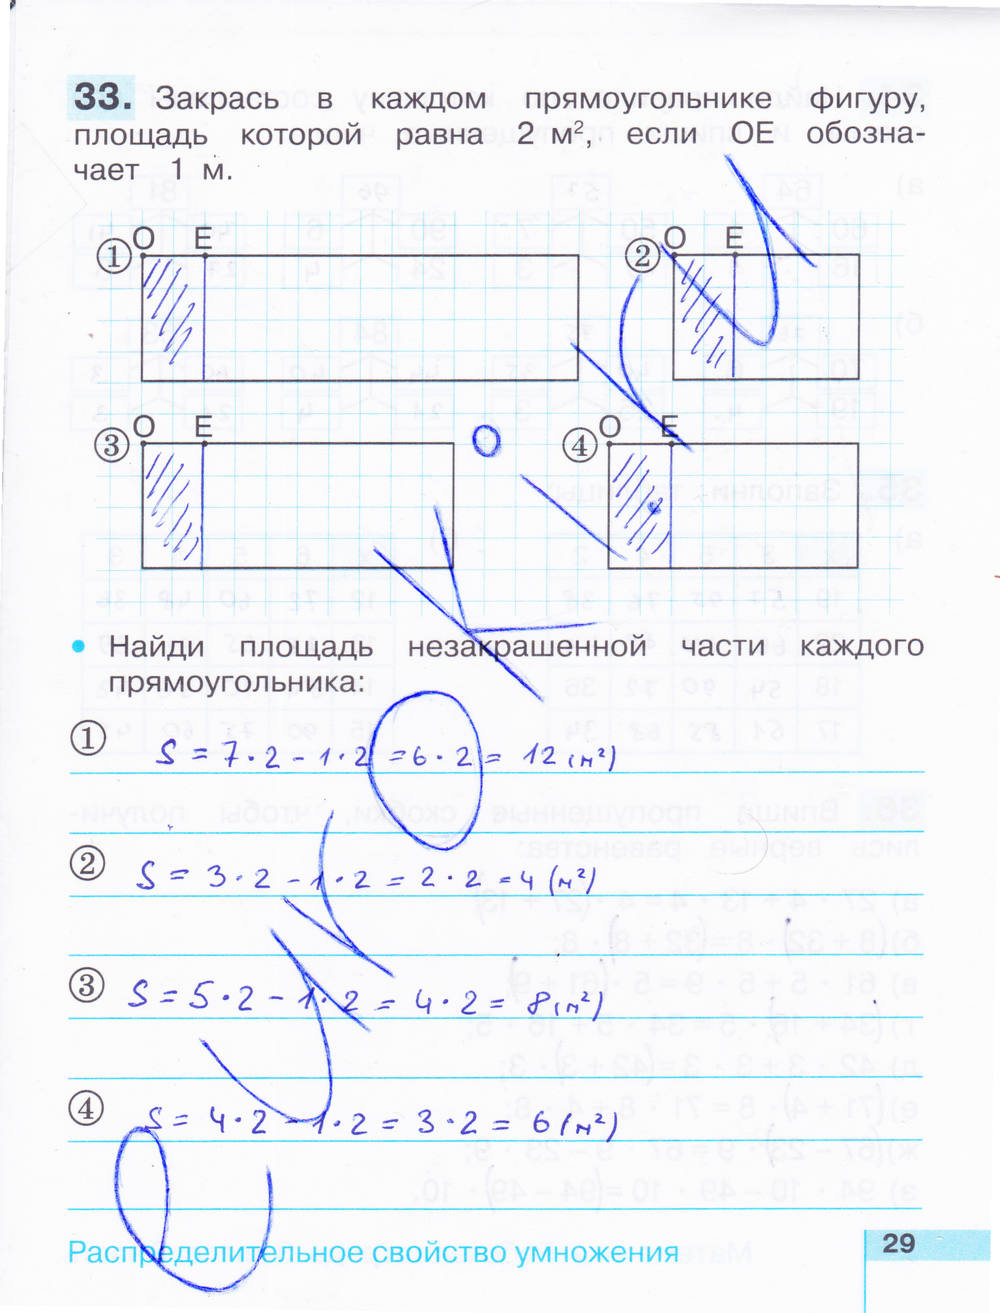 33. Закрась в каждом прямоугольнике фигуру,
площадь которой равна 2 м², если ОЕ обозна-
чает 1 м.
1 О Е
2 О Е
3 О Е
4 О Е
• Найди площадь незакрашенной части каждого
прямоугольника:
1 S = 7·2 - 1·2 = 6·2 = 12 (м²)
2 S = 3·2 - 1·2 = 2·2 = 4 (м²)
3 S = 5·2 - 1·2 = 4·2 = 8 (м²)
4 S = 4·2 - 1·2 = 3·2 = 6 (м²)
Распределительное свойство умножения
29